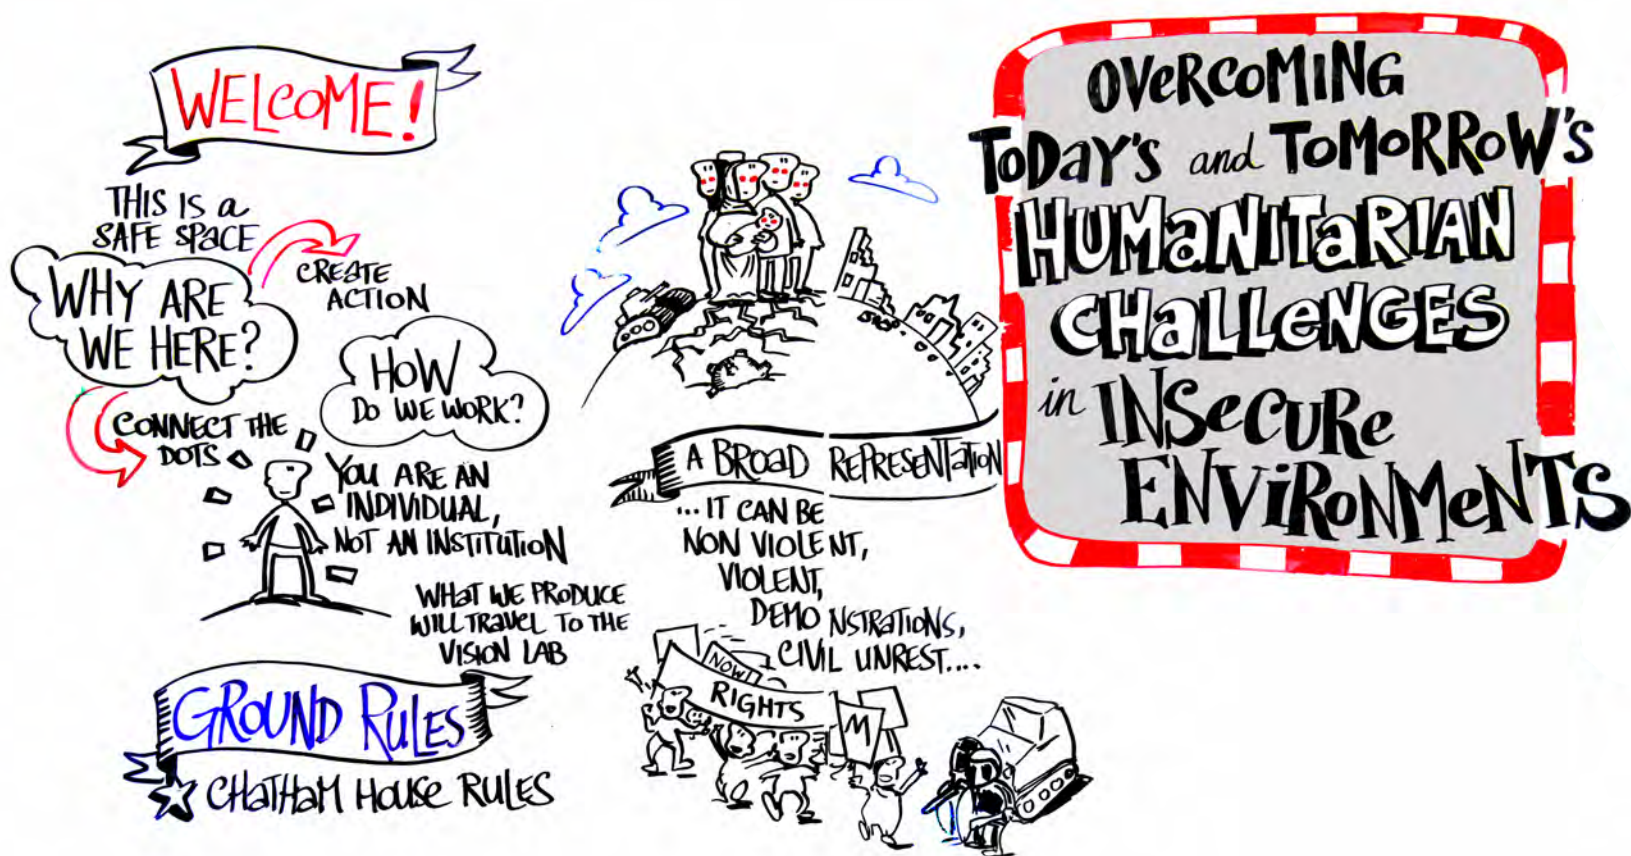 WELCOME!
THIS IS a
SAFE SPACE
WHY ARE
WE HERE?
CREATE
ACTION
CONNECT THE
DOTS
HOW
DO WE WORK?
YOU ARE AN
INDIVIDUAL,
NOT AN INSTITUTION
WHAT WE PRODUCE
WILL TRAVEL TO THE
VISION LAB
GROUND RULES
CHATHAM HOUSE RULES
A BROAD REPRESENTATION
... IT CAN BE
NON VIOLENT,
VIOLENT,
DEMONSTRATIONS,
CIVIL UNREST....
NOW!
RIGHTS
M
OVERCOMING
TODAY'S and TOMORROW'S
HUMANITARIAN
CHALLENGES
in INSECURE
ENVIRONMENTS